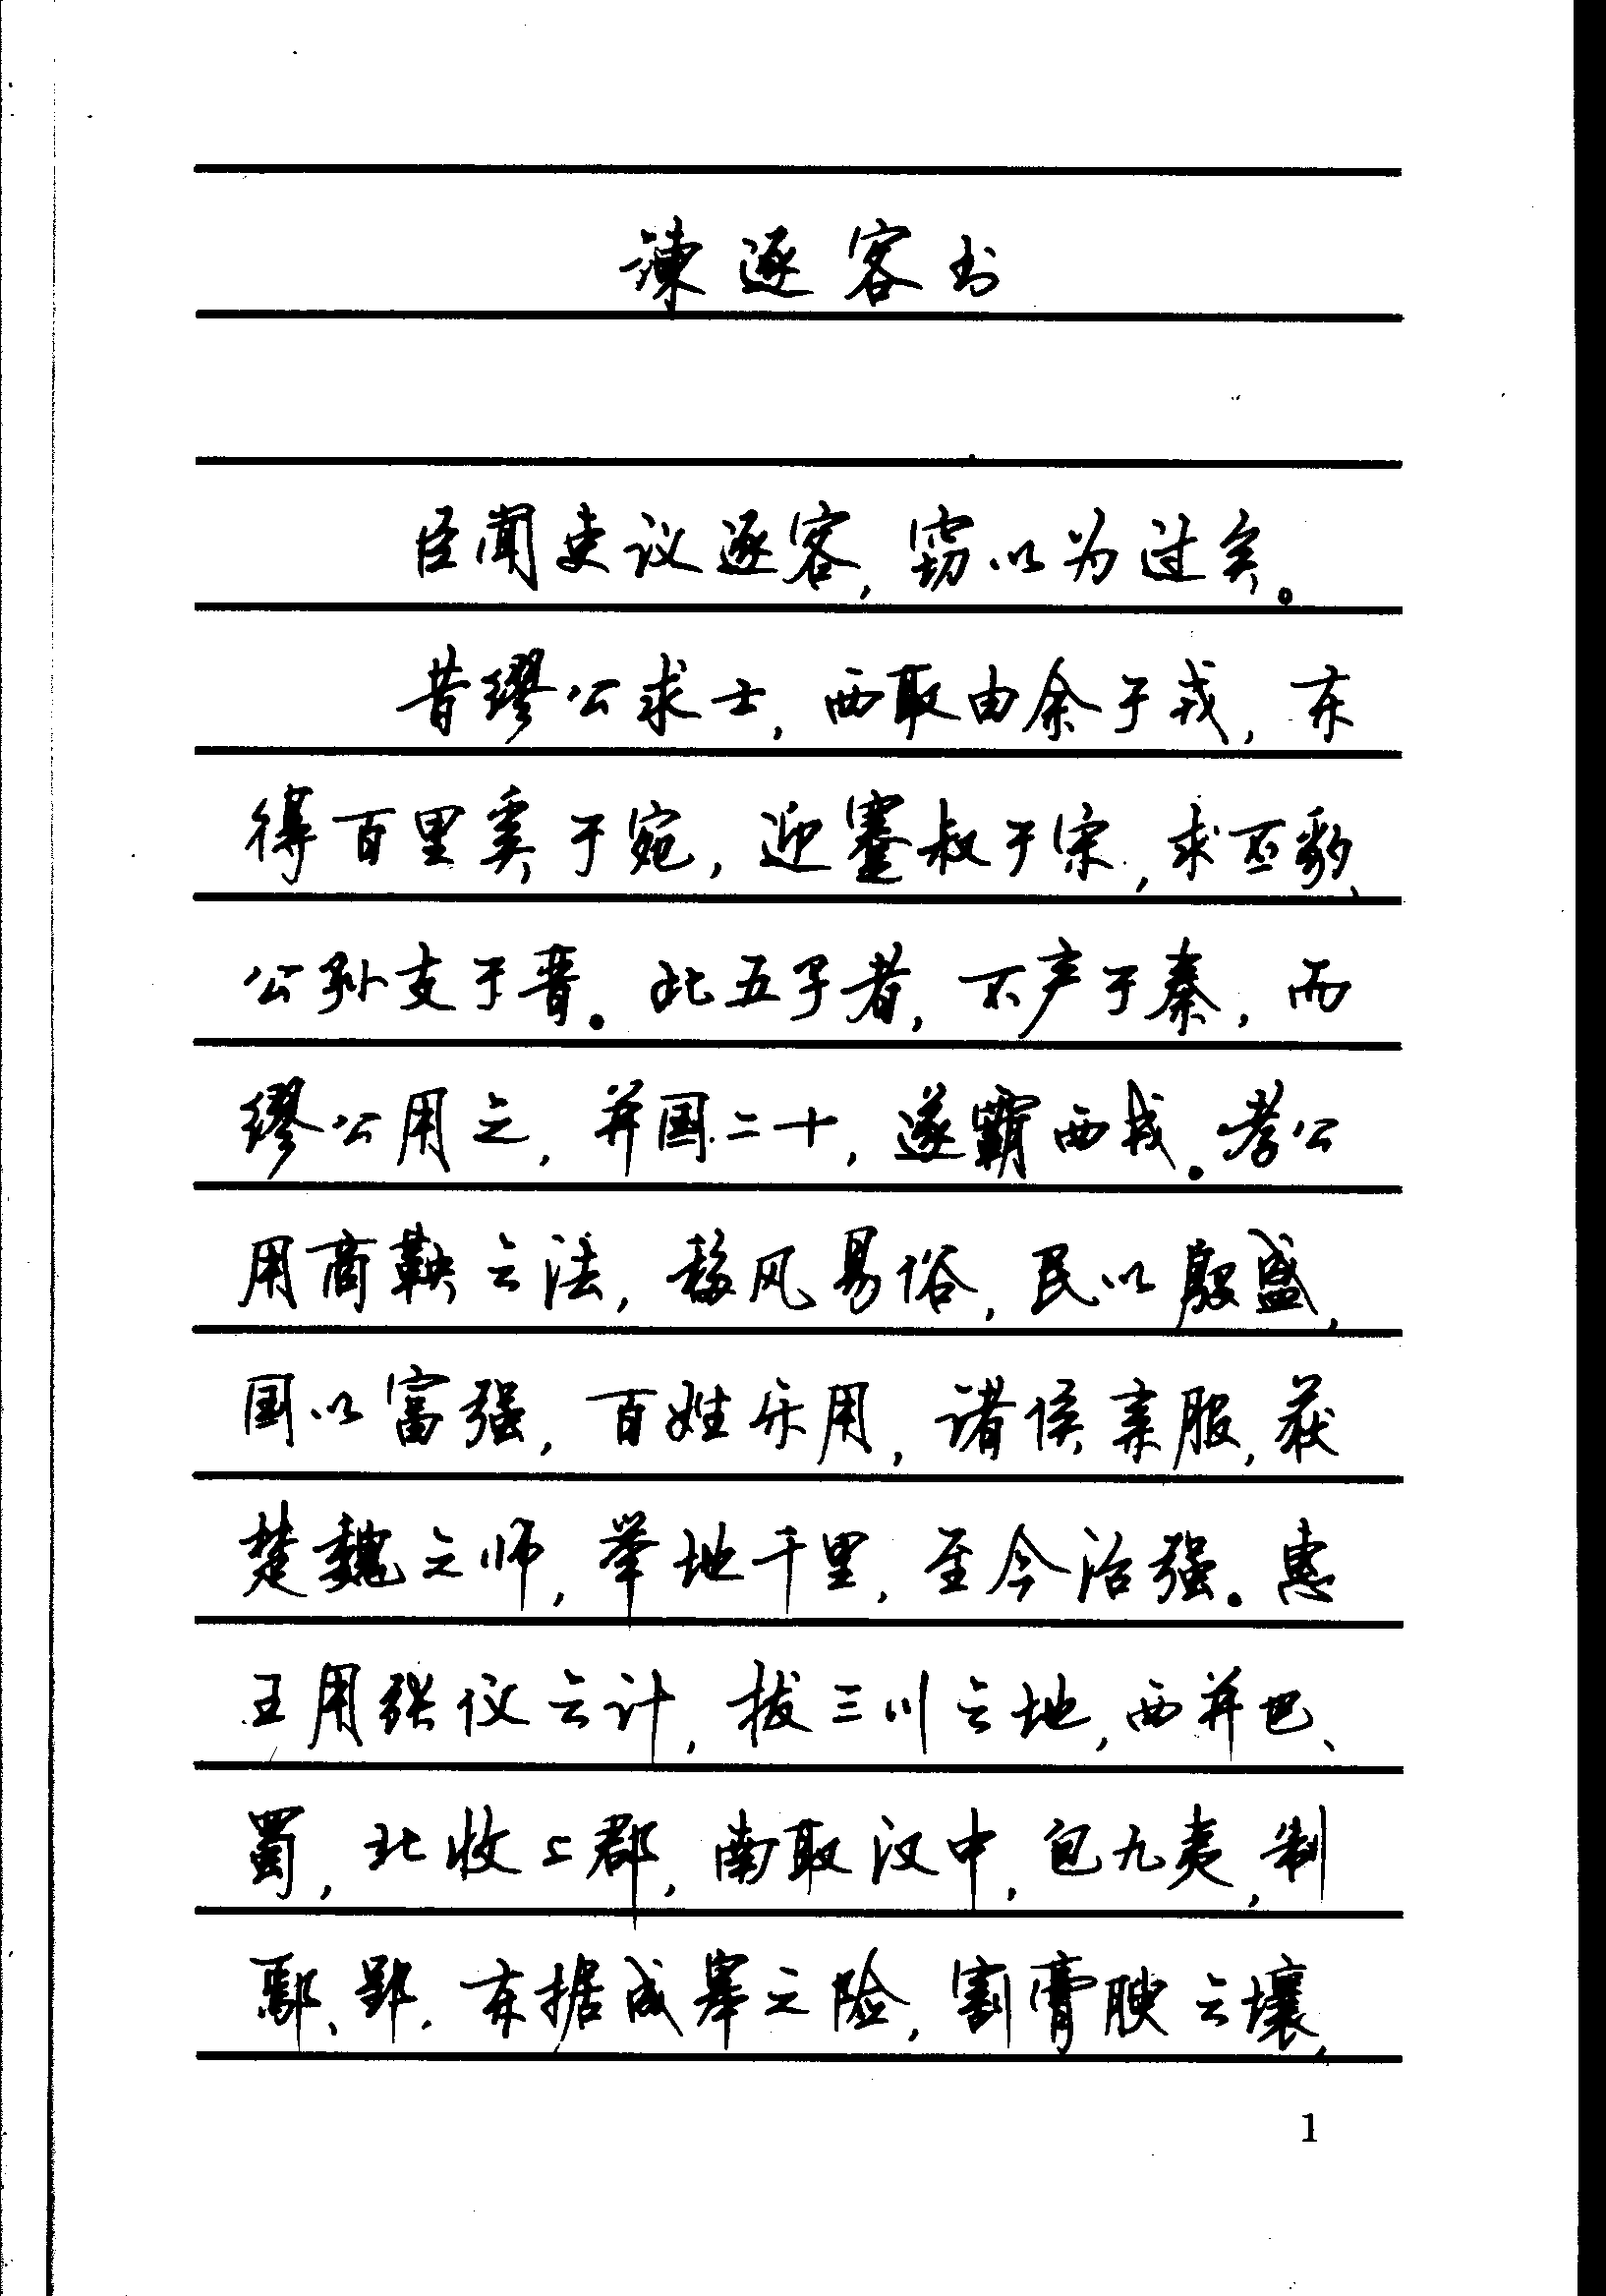 谏逐客书
臣闻吏议逐客，窃以为过矣。
昔缪公求士，西取由余于戎，东
得百里奚于宛，迎蹇叔于宋，求丕豹、
公孙支于晋。此五子者，不产于秦，而
缪公用之，并国二十，遂霸西戎。孝公
用商鞅之法，移风易俗，民以殷盛，
国以富强，百姓乐用，诸侯亲服，获
楚魏之师，举地千里，至今治强。惠
王用张仪之计，拔三川之地，西并巴、
蜀，北收上郡，南取汉中，包九夷，制
鄢、郢，东据成皋之险，割膏腴之壤，
1